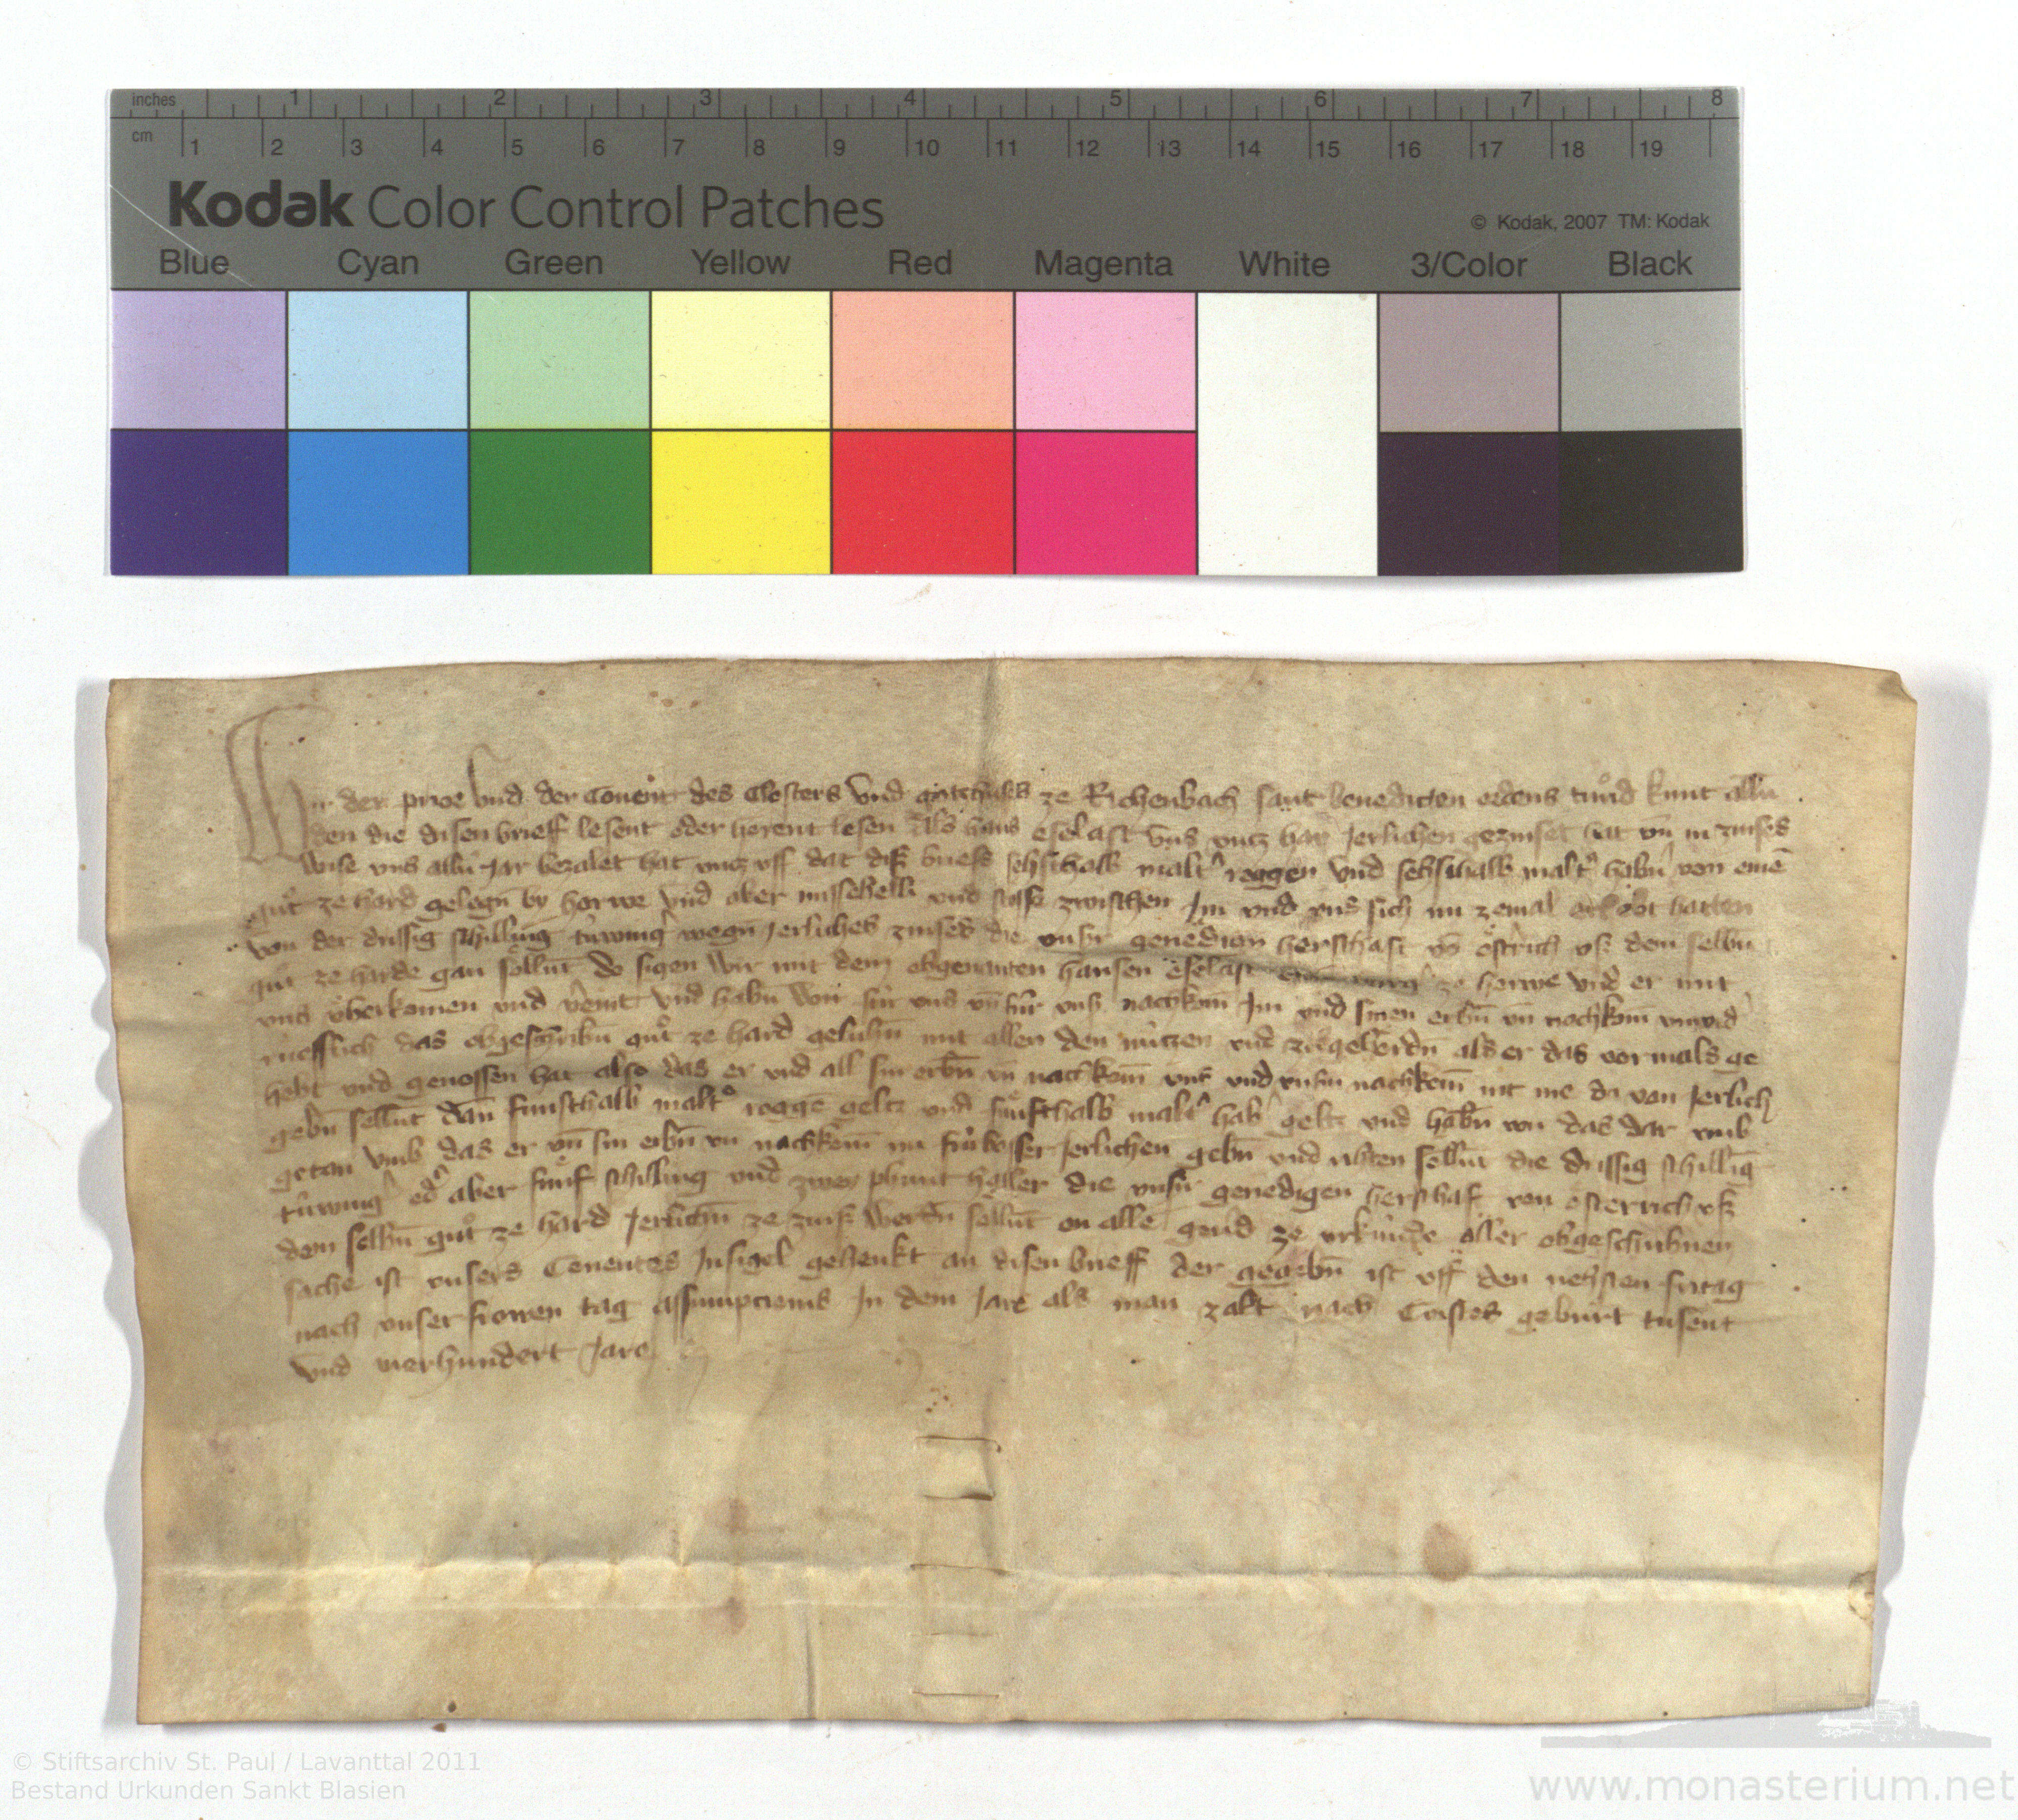 inches 1 2 3 4 5 6 7 8
cm 1 2 3 4 5 6 7 8 9 10 11 12 13 14 15 16 17 18 19
Kodak Color Control Patches
© Kodak, 2007 TM: Kodak
Blue Cyan Green Yellow Red Magenta White 3/Color Black
Wir der prior vnd der Conent des Closters vnd gotzhuses ze Richenbach sant benedicten ordens tuͦnd kunt allen
den die disen brieff lesent oder horent lesen Als hans eselast vns vntz har Jerlichen gezinset hat vn̄ in zinses
wise vns allū Jar bezalet hat vntz vff dat diß briefs sehsthalb malt roggen vnd sehsthalb malt habn̄ von eine
guͦt ze hard gelegn̄ by horwe vnd aber missehelli vnd stosse zwischen Jm vnd vns sich nu zemal hatten
von der drissig schilling tuwing wegn̄ Jerliches zinses die vnsr genedigen herschaft vō ostrich vß dem selbn̄
guͦt ze harde gan soͤllnt do sigen wir mit dem obgenanten hansen eselast ze horwe vnd er mit
vns vberkomen vnd vnd habn̄ wir fuͤr vns vn̄ fuͤr vnß nachkom̄ Jm vnd sinen erbn̄ vn̄ nochkom̄
das obgeschribn̄ guͦt ze hard geluhn̄ mit allen den nuͤtzen vnd zuͦgehoͤrdn̄ als er das vormals ge
hebt vnd genossen hat also das er vnd all sin erbn̄ vn̄ nachkom̄ vns vnd vnsn̄ nachkom̄ nit me da von Jerlich
gebn̄ soͤllnt dan̄ funfthalb malt rogge geltz vnd fuͤnfthalb malt hab geltz vnd habn̄ wir das dar vmb
getan vmb das er vn̄ sin erbn̄ vn̄ nachkom̄ nu fuͤrbasser Jerlichen gebn̄ vnd rihten soͤllnt die drissig schillig
tuwing ed aber fuͤnf schilling vnd zwey phunt haller die vnsn̄ genedigen herschaft von osterrich vß
dem selbn̄ guͦt ze hard Jerlichn̄ ze zinß werdn̄ soͤllnt on alle geud ze vrkuͤnde aller obgeschribnen
sache ist vnsers Conentes Jnsigel gehenkt an disen brieff der gegebn̄ ist vff den nehsten fritag
nach vnser frowen tag assumpcionis Jn dem Jare als man zalt nach Cristes geburt tusent
vnd vierhundert Jare
© Stiftsarchiv St. Paul / Lavanttal 2011
Bestand Urkunden Sankt Blasien
www.monasterium.net